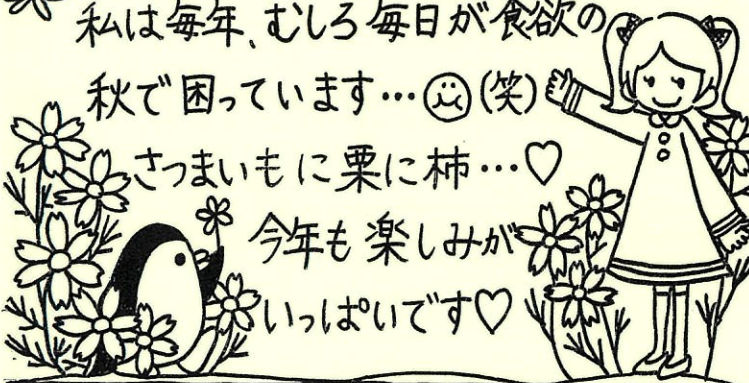 私は毎年、むしろ毎日が食欲の
秋で困っています…(笑)
さつまいもに栗に柿…♡
今年も楽しみが
いっぱいです♡